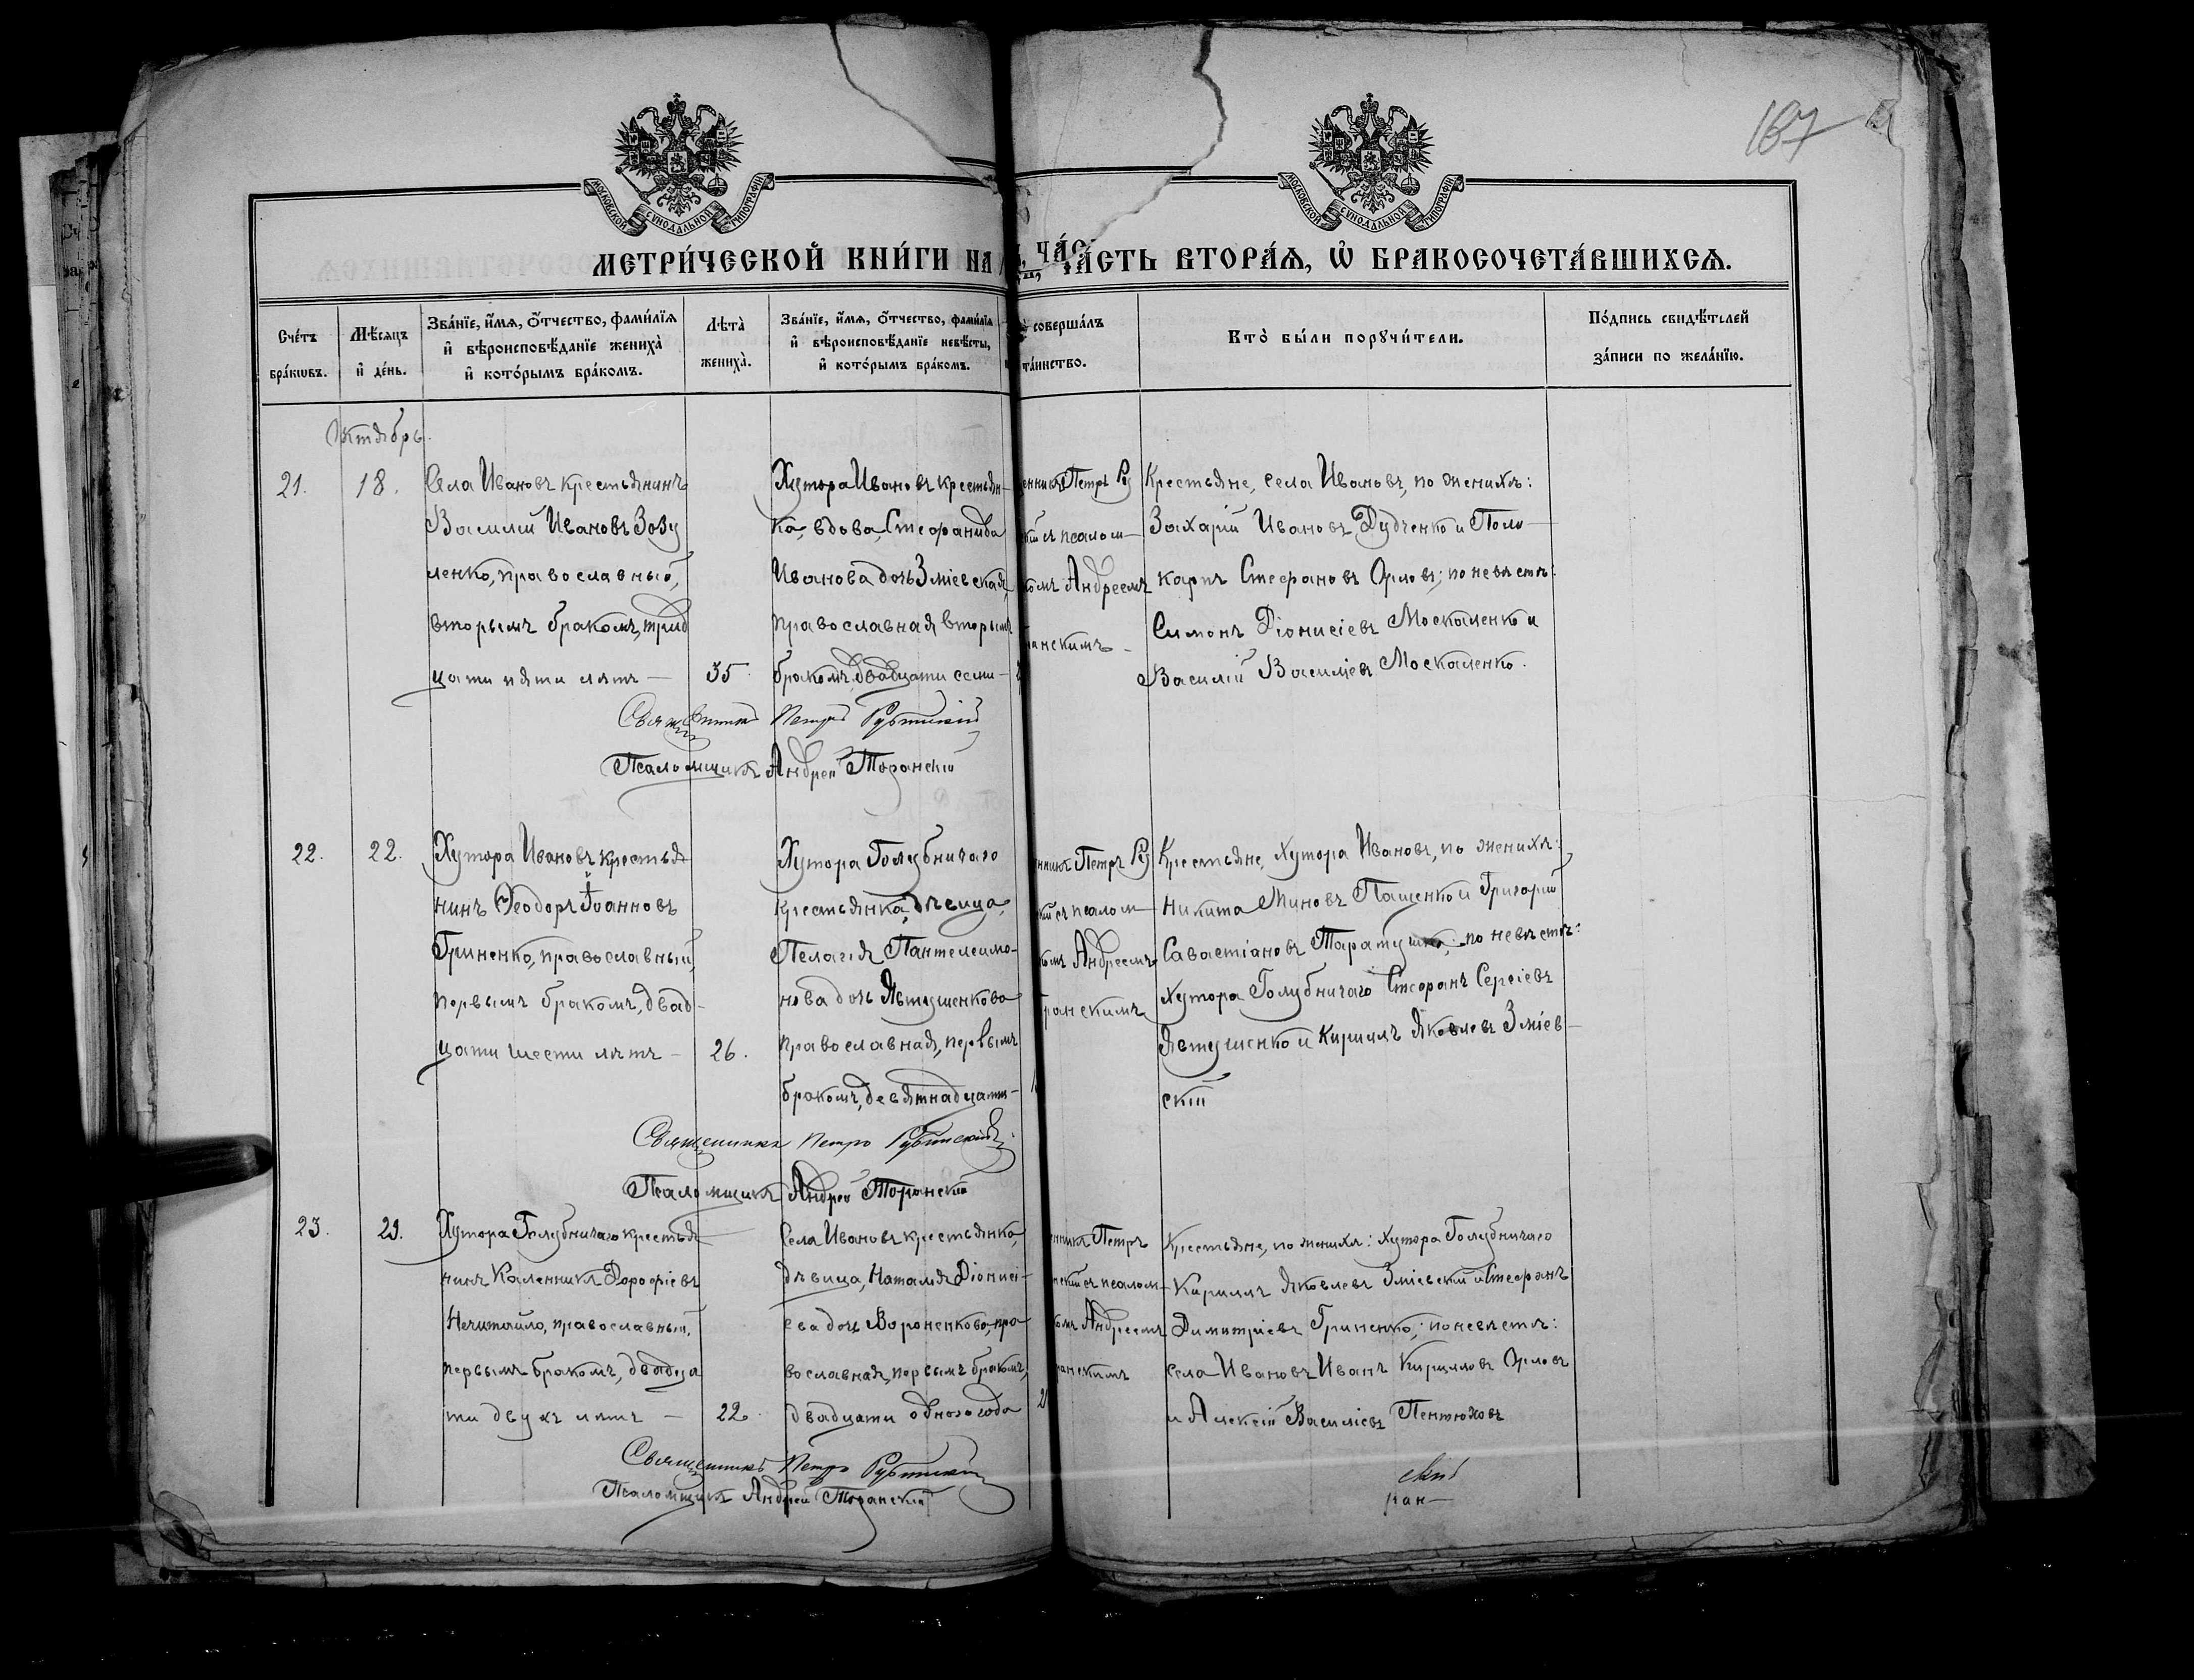 167
МОСКОВСКОЙ СѴНОДАЛЬНОЙ ТИПОГРАФІИ
МОСКОВСКОЙ СѴНОДАЛЬНОЙ ТИПОГРАФІИ
МЕТРИ́ЧЕСКОЙ КНИ́ГИ НА
ЧА́СТЬ ВТОРА́Ѧ, Ѡ҆ БРАКОСОЧЕТА́ВШИХСѦ.
Сче́тъ
бра́кѡвъ.
Мѣ́сѧцъ
и҆ де́нь.
Зва́нїе, и҆́мѧ, ѻ҆́тчество, фами́лїѧ
и҆ вѣроисповѣ́данїе жениха̀
и҆ кото́рымъ бра́комъ.
Лѣта̀
жениха̀.
Зва́нїе, и҆́мѧ, ѻ҆́тчество, фами́лїѧ
и҆ вѣроисповѣ́данїе невѣ́сты,
и҆ кото́рымъ бра́комъ.
соверша́лъ
та́инство.
Кто̀ бы́ли порꙋчи́тели.
По́дпись свидѣ́телей
за́писи по жела́нїю.
Октябрь.
21.
18.
Села Ивановъ крестьянинъ
Василій Ивановъ Зозу
ленко, православный,
вторымъ бракомъ, трид
цати пяти лѣтъ —
35
Хутора Ивановъ крестьян-
ка, вдова, Стефанида
Иванова дочь Зміевская,
православная вторымъ
бракомъ, двадцати семи —
енникъ Петръ Ру
кій съ псалом—
комъ Андреемъ
анскимъ —
Крестьяне, села Ивановъ, по женихѣ:
Захарій Ивановъ Дудченко и Поли—
карпъ Стефановъ Орловъ; по невѣстѣ:
Симонъ Діонисіевъ Москаленко и
Василій Василіевъ Москаленко.
Священникъ Петръ Рубинскій
Псаломщикъ Андрей Торанскій
22.
22.
Хутора Ивановъ крестья
нинъ Ѳеодоръ Іоанновъ
Гриненко, православный,
первымъ бракомъ, двад-
цати шести лѣтъ —
26.
Хутора Голубничаго
крестьянка, дѣвица,
Пелагія Пантелеимо-
нова дочь Явтушенкова
православная, первымъ
бракомъ, девятнадцати-
нникъ Петръ Ру
кій съ псалом—
комъ Андреемъ
ранскимъ
Крестьяне, Хутора Ивановъ, по женихѣ:
Никита Миновъ Пащенко и Григорій
Савастіановъ по невѣстѣ:
Хутора Голубничаго Стефанъ Сергіевъ
Явтушенко и Кириллъ Яковлевъ Зміев—
скій
Священникъ Петръ Рубинскій
Псаломщикъ Андрей Торанскій
23.
29.
Хутора Голубничаго крестья
нинъ Каленникъ Дорофіевъ
Нечитайло, православный,
первымъ бракомъ, двадца
ти двухъ лѣтъ —
22
Села Ивановъ крестьянка,
дѣвица, Наталія Діонисі-
ева дочь Вороненкова, пра
вославная, первымъ бракомъ,
двадцати одного года
нникъ Петръ
скій съ псалом—
комъ Андреемъ
ранскимъ
Крестьяне, по женихѣ: Хутора Голубничаго
Кириллъ Яковлевъ Зміевскій и Стефанъ
Димитріевъ Гриненко; по невѣстѣ:
села Ивановъ Иванъ Кирилловъ Орловъ
и Алексій Василіевъ Пентюховъ
Священникъ Петръ Рубинскій
Псаломщикъ Андрей Торанскій
скій
ран—